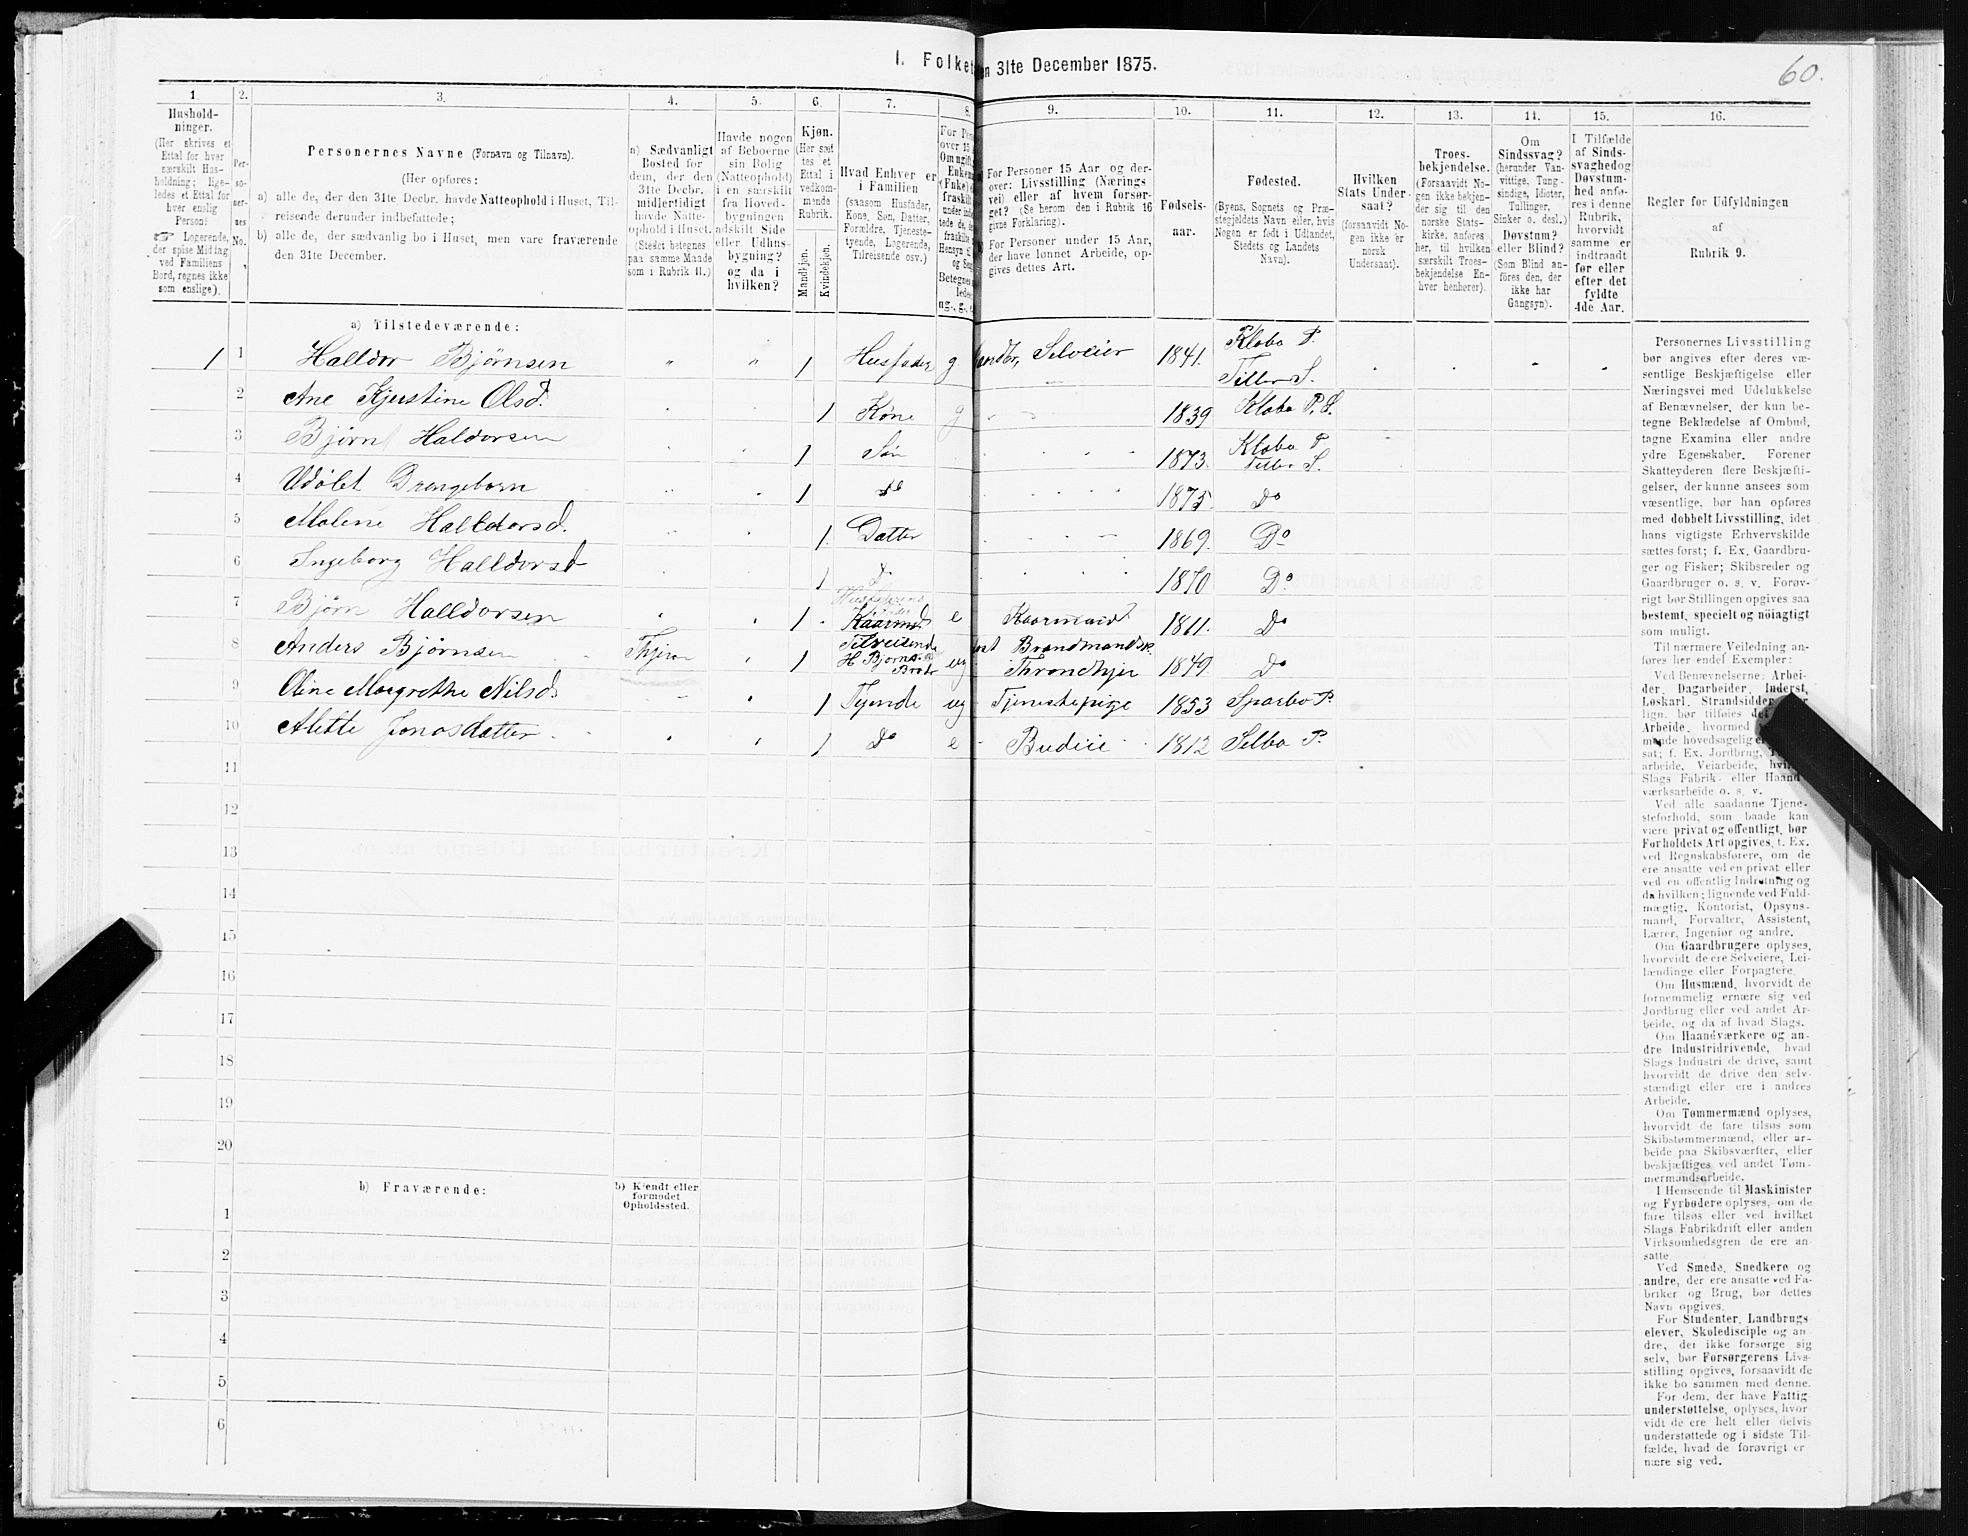 I. Folket en 31te December 1875.
60.
1. 2. 3. 4. 5. 6. 7. 8. 9. 10. 11. 12. 13. 14. 15. 16.
Hushold-
ninger.
(Her skrives et
Ettal for hver
særskilt Hus-
holdning; lige-
ledes et Ettal for
hver enslig
Person.)
☞ Logerende,
der spise Middag
ved Familiens
Bord, regnes ikke
som enslige).
Per-
so-
ner-
nes
No.
Personernes Navne (Fornavn og Tilnavn).
(Her opføres:
a) alle de, der den 31te Decbr. havde Natteophold i Huset, Til-
reisende derunder indbefattede;
b) alle de, der sædvanlig bo i Huset, men vare fraværende
den 31te December.
a) Sædvanligt
Bosted for
dem, der den
31te Decbr.
midlertidigt
havde Natte-
ophold i Huset.
(Stedet betegnes
paa samme Maade
som i Rubrik 11.)
Havde nogen
af Beboerne
sin Bolig
(Natteophold)
i en særskilt
fra Hoved-
bygningen
adskilt Side
eller Udhus-
bygning?
og da i
hvilken?
Kjøn.
(Her sæt
tes et
Ettal i
vedkom-
mende
Rubrik.
Mandkjøn.
Kvindekjøn.
Hvad Enhver er
i Familien
(saasom Husfader,
Kone, Søn, Datter,
Forældre, Tjeneste-
tyende, Logerende,
Tilreisende osv.)
For Personer 15 Aar og der-
over: Livsstilling (Nærings
vei) eller af hvem forsør-
get? (Se herom den i Rubrik 16
givne Forklaring).
For Personer under 15 Aar,
der have lønnet Arbeide, op-
gives dettes Art.
Fødsels-
aar.
Fødested.
(Byens, Sognets og Præ-
stegjeldets Navn eller, hvis
Nogen er født i Udlandet,
Stedets og Landets
Navn).
Hvilken
Stats Under-
saat?
(forsaavidt No-
gen ikke er
norsk
Undersaat).
Troes-
bekjendelse.
(Forsaavidt No-
gen ikke bekjen-
der sig til den
norske Stats-
kirke, anføres
her, til hvilken
særskilt Troes-
bekjendelse En-
hver henhører).
Om
Sindssvag?
(herunder Van-
vittige, Tung-
sindige, Idioter,
Tullinger,
Sinker o. desl.)
Døvstum?
eller Blind?
(Som Blind an-
føres den, der
ikke har
Gangsyn).
I Tilfælde
af Sinds-
svaghed og
Døvstum-
hed anfø-
res i denne
Rubrik,
hvorvidt
samme er
indtraadt
før eller
efter det
fyldte
4de Aar.
Regler for Udfyldningen
af
Rubrik 9.
a) Tilstedeværende:
1 1 Halldor Bjørnsen 1 Husfader g Selveier 1841. Klæbo P. Tiller S.
2 Ane Kjerstine Olsd. 1 Kone g 1839 Klæbo P. S.
3 Bjørn Haldorsen 1 Søn 1873. Klæbo P. Tiller S.
4 Udøbt Drengebarn 1 do 1875. Do
5 Malene Halldorsd. 1 Datter 1869. Do
6 Ingeborg Halldorsd 1 D. 1870 Do
7 Bjørn Halldorsen 1 Kaarmd e Kaarmand 1811. Do
8 Anders Bjørnsen 1 Tilreisende H Bjørns. Bror ug Brandmandsk. Throndhjem 1849. Do
9 Oline Margrethe Nilsd 1 Tyende ug Tjenestepige 1853 Sparbo P.
10 Alette Jonasdatter 1 Do e Budeie 1812 Selbo P.
11
12
13
14
15
16
17
18
19
20
b) Fraværende:
b) Kjendt eller
formodet
Opholdssted.
1
2
3
4
5
6
Personernes Livsstilling
bør angives efter deres væ-
sentlige Beskjæftigelse eller
Næringsvei med Udelukkelse
af Benævnelser, der kun be-
tegne Beklædelse af Ombud,
tagne Examina eller andre
ydre Egenskaber. Forener
Skatteyderen flere Beskjæfti-
gelser, der kunne ansees som
væsentlige, bør han opføres
med dobbelt Livsstilling, idet
hans vigtigste Erhvervskilde
sættes først; f. Ex. Gaardbru-
ger og Fisker; Skibsreder og
Gaardbruger o. s. v. Forøv-
rigt bør Stillingen opgives saa
bestemt, specielt og nöiagtigt
som muligt.
Til nærmere Veiledning an-
føres her endef Exempler:
Ved Benævnelserne: Arbei-
der, Dagarbeider, Inderst,
Løskarl, Strandsidder
lign. bør tilføies
Arbeide, hvormed
mande hovedsagelig
sat; f. Ex. Jordbrug,
arbeide, Veiarbeide,
Slags Fabrik- eller Haand
værksarbeide o. s. v.
Ved alle saadanne Tjene-
steforhold, som baade kan
være privat og offentligt, bør
Forholdets Art opgives, f. Ex.
ved Regnskabsførere, om de
ere ansatte ved en privat eller
ved en offentlig Indretning og
da hvilken; lignende ved Fuld-
mægtig, Kontorist, Opsyns-
mand, Forvalter, Assistent,
Lærer, Ingeniør og andre.
Om Gaardbrugere oplyses,
hvorvidt de ere Selveiere, Lei-
lændinge eller Forpagtere.
Om Husmænd, hvorvidt de
fornemmelig ernære sig ved
Jordbrug eller ved andet Ar-
beide, og da af hvad Slags.
Om Haandværkere og an-
dre Industridrivende, hvad
Slags Industri de drive, samt
hvorvidt de drive den selv-
stændigt eller ere i andres
Arbeide.
Om Tømmermænd oplyses,
hvorvidt de fare tilsøs som
Skibstømmermænd, eller ar-
beide paa Skibsværfter, eller
beskjæftiges ved andet Tøm-
mermandsarbeide.
I Henseende til Maskinister
og Fyrbødere oplyses, om de
fare tilsøs eller ved hvilket
Slags Fabrikdrift eller anden
Virksomhedsgren de ere an-
satte
Ved Smede, Snedkere og
andre, der ere ansatte ved Fa-
briker og Brug, bør dettes
Navn opgives.
For Studenter, Landbrugs
elever, Skoledisciple og an
dre, der ikke forsørge sig
selv, bør Forsørgerens Livs-
stilling opgives, forsaavidt de
ikke bo sammen med denne.
For dem, der have Fattig-
understøttelse, oplyses, hvor
vidt de ere helt eller delvis
understøttede og i sidste Til-
fælde, hvad de forøvrigt er
nære sig ved.